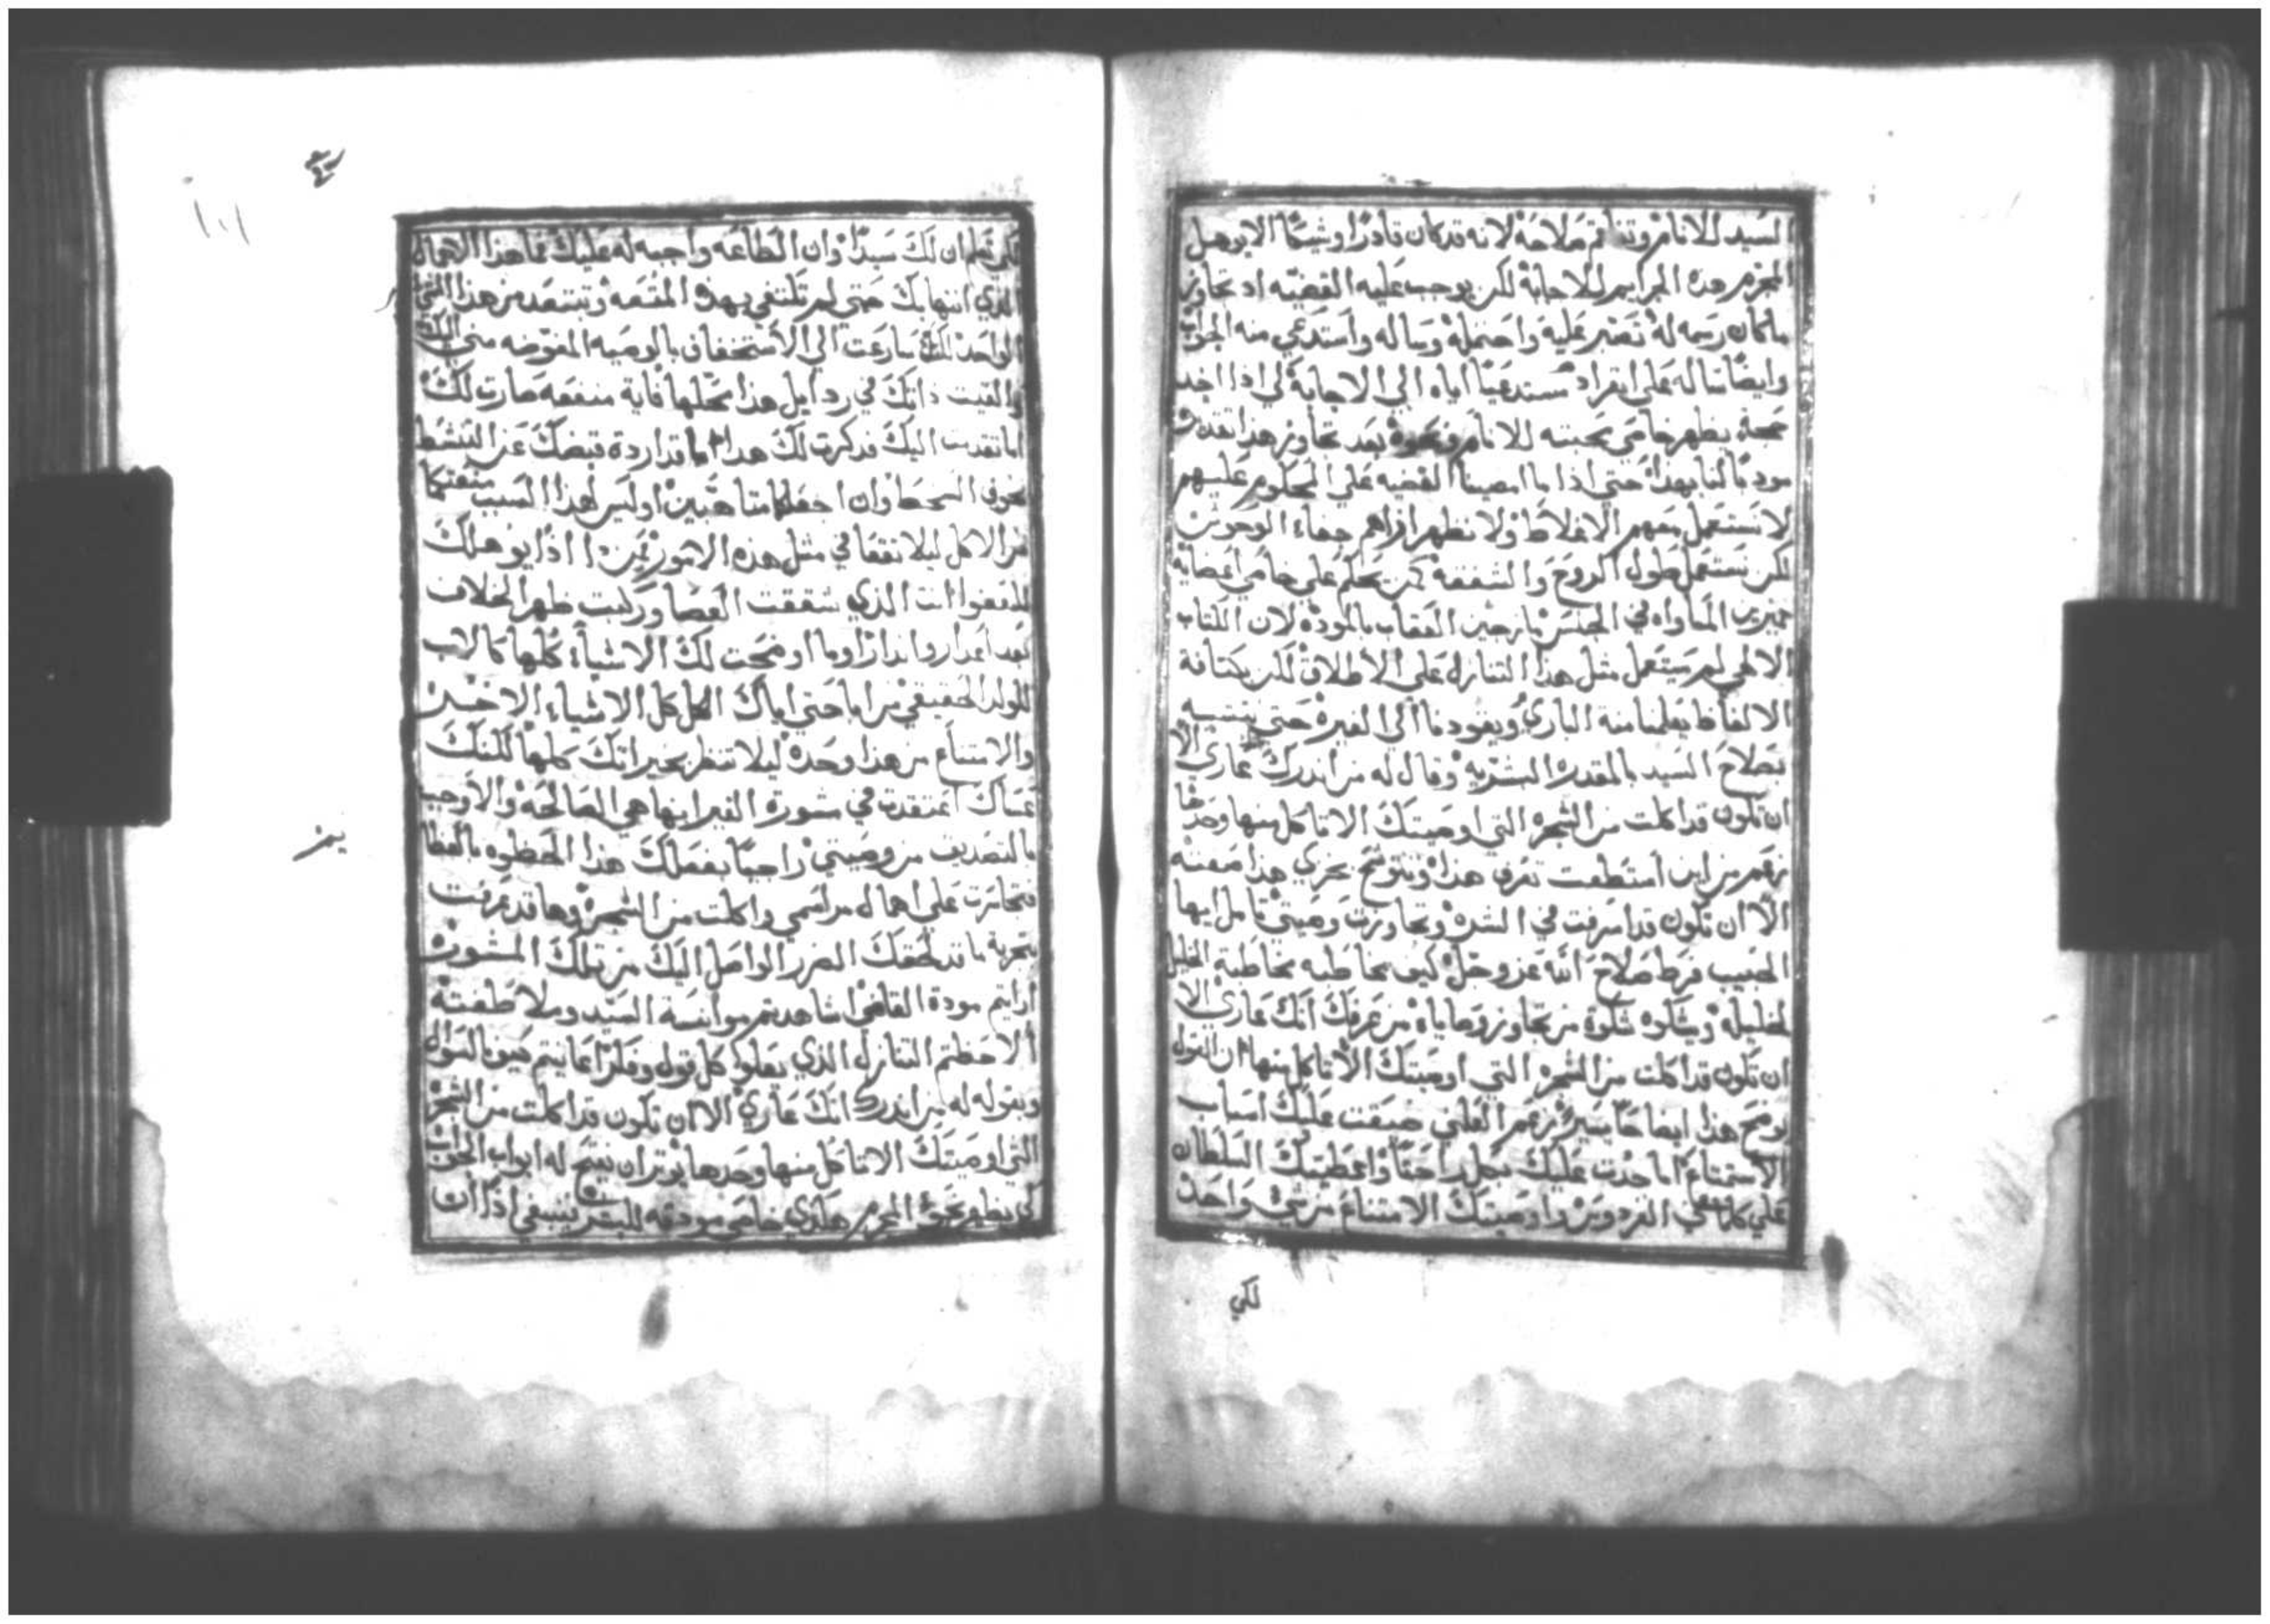 السيد للانام وتناهى صلاحه لانه قد كان قادرا وشيكا الا يوهل
المجرم هذه الجرايم للاجابة لكن يوجب عليه القضيه اد تجاوز
ما كان رسمه له تصبر عليه واحتمله وساله واستدعي منه الجواب
وايضا ساله على انفراد مستدعيا اياه الي الاجابة لي اذا اخد
حجة يظهر خاصي محبته للانام ونحوه بعد تجاوز هذا تقدره
مودبا لنا بهذا حتي اذا ما امضينا القضيه علي المحكوم عليهم
لا نستعمل معهم الاغلاظ ولا نظهر افراهم جفاء الوحوش
لكن نستعمل طول الروح والشفقه كمن يحكم علي خاصي اعضايه
خبيرين المساواه في الجنس مازجين العقاب بالموده لان الكتاب
الالهي لم يستعمل مثل هذا التنازل علي الاطلاق لكن بكتافة
الالفاظ يعلمنا منة الباري ويقودنا الي الغيره حتي نتشبه
بصلاح السيد بالمقدره البشريه وقال له من اندرك انك عاري الا
ان تكون قد اكلت من الشجره التي اوصيتك الا تاكل منها وحدها
زعم من اين استطعت تعرف هذا وتتوشح بخزي هذا صفته
الا ان تكون قد اسرفت في الشره وتجاوزت وصيتي تامل ايها
الحبيب فرط صلاح الله عز وجل كيف يخاطبه مخاطبة الخليل
لخليله ويشكوه شكوة من تجاوز وصاياه من عرفك انك عاري الا
ان تكون قد اكلت من الشجره التي اوصيتك الا تاكل منها ان القول
يوضح هذا ايضاحا يسيرا زعم العلي ضيقت عليك اسباب
الاستمتاع اما جدت عليك بكل راحتا واعطيتك السلطان
علي كلما في الفردوس واوصيتك الامتناع من شي واحد
لكي
١٠١
لكي تعلم ان لك سيدا وان الطاعه واجبه له عليك فما هذا الاهمال
الذي انتهابك حتي لم تكتفي بهذه المتعه وتبتعد من هذا الشي
الواحد لكنك سارعت الي الاستخفاف بالوصيه المفوضه مني اليك
والقيت ذاتك في ردايل هذا محلها فاية منفعه صارت لك
اما تقدمت اليك فدكرت لك هذا اما قد اردة قبضك عن التبسط
بخوف السخط وان اجعلكما متاهبين اوليس لهذا السبب منعتكما
من الاكل ليلا تقعا في مثل هذه الامور فمن دا اذا يوهلك
للعفوا انت الذي شققت العصا وركبت ظهر الخلاف
بعد اعدار وانذارا وما اوضحت لك الاشياء كلها كالاب
للولد الحقيقي مراما حتي اباك الكل كل الاشياء الاخر
والامتناع من هذا وحده ليلا تنظر بخيراتك كلها لكنك
عساك اعتقدت في مشورة الغير انها هي الصالحه والاوجب
بالتصديق من وصيتي راجيا بفعلك هذا الحظوه بالعظا
فتجاسرت علي اهمال مراسمي واكلت من الشجره وها قد عرفت
بتجربة ما قد لحقك الضرر الواصل اليك من تلك المشوره
ارايتم مودة القاضي اشاهدتم موانسة السيد وملاطفته
الاحظتم التنازل الذي يعلوا كل قول وفكرا عاينتم كيف بالسوال
وبقوله له من اندرك انك عاري الا ان تكون قد اكلت من الشجره
التي اوصيتك الا تاكل منها وحدها يوتر ان يفتح له ابواب الجواب
لكي يظهر نحو المجرم هكذي خاصي مودته للبشر ينبغي اذا ان